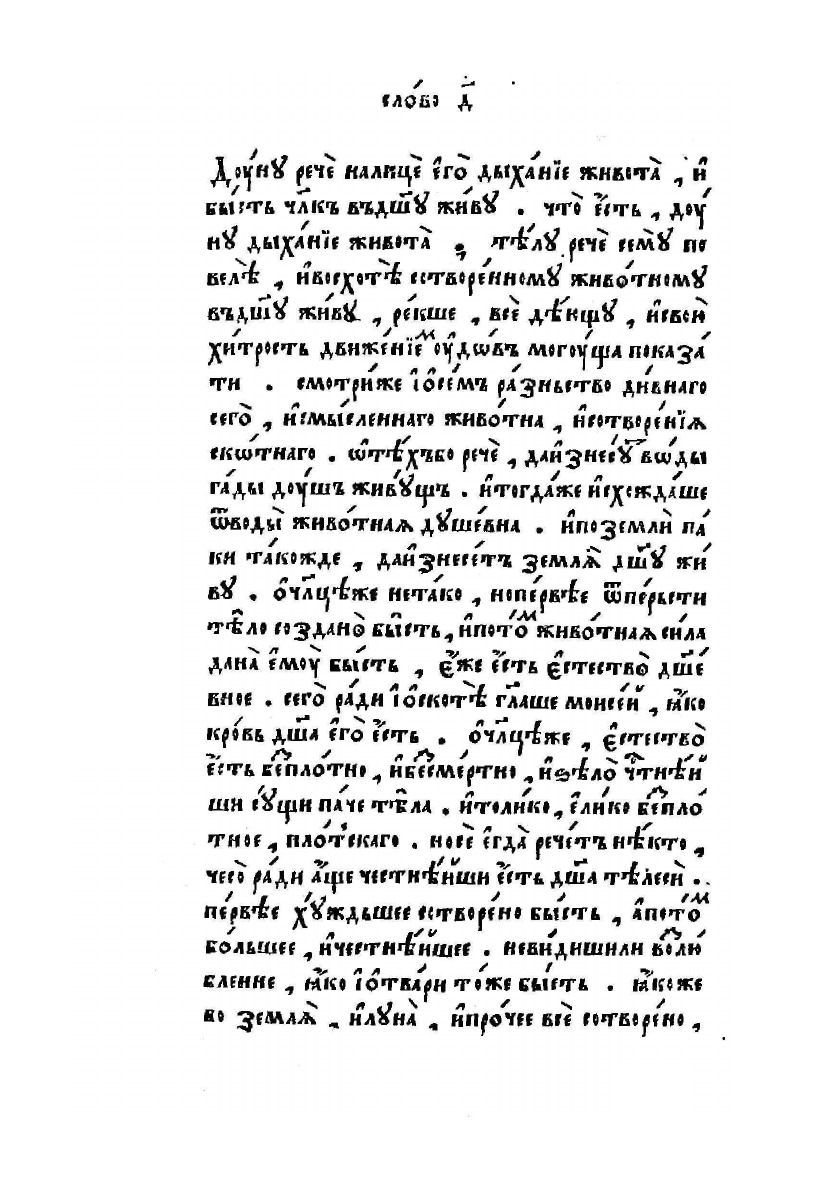 сло́во д҃
Доу́ну речѐ налицѐ є҆го̀ дыха́нїе живота̀ , и҆
бы́сть чл҃къ въдш҃у жи́ву . что̀ є҆́сть , доу́
ну дыха́нїе живота̀ , тѣ́лу речѐ сему̀ по
велѣ̀ , и҆восхотѣ̀ сотворе́нному живо́тному
въдш҃у жи́ву , ре́кше , всѐ дѣ́ющу , и҆всю̀
хи́трость движе́нїеⷨ оу҆́дѡвъ могоу́ща показа́
ти . смотри́же і҆ѡ҆се́мъ ра́зньство ди́внаго
сего̀ , и҆смы́сленнаго живо́тна , и҆сотворе́нїѧ
ско́тнаго . ѡ҆тѣ́хъбо речѐ , даи҆знесу́т во́ды
га́ды доу́шъ живу́щъ . и҆тогда́же и҆схожда́ше
ѿводы̀ живо́тнаѧ душе́вна . и҆поземлѝ па́
ки та́кожде , даи҆знесе́тъ землѧ̀ дш҃у жи́
ву . ѡ҆чл҃цѣ́же нета́ко , нопе́рвѣе ѿпе́рьсти
тѣ́ло со́здано бы́сть , и҆пото́ⷨ живо́тнаѧ си́ла
дана̀ є҆моу̀ бы́сть , є҆́же є҆́сть є҆стество̀ дш҃е́
вное . сего̀ ра́ди і҆ѡ҆ско́тѣ гл҃аше моисе́й , ꙗ҆́ко
кро́вь дш҃а є҆го̀ є҆́сть . ѡ҆чл҃цѣ́же , є҆стество̀
є҆́сть беспло́тно , и҆бесме́ртно , и҆ѕѣло̀ чтⷭ҇нѣ́й
ши су́щи па́че тѣ́ла . и҆толи́ко , є҆ли́ко беспло́
тное , пло́тскаго . носѐ є҆гда̀ рече́тъ нѣ́кто ,
чесо̀ ра́ди а҆́ще честнѣ́йши є҆́сть дш҃а тѣлесѝ .
пе́рвѣе ху́ждьшее сотворе́но бы́сть , а҆пото́ⷨ
бо́льшее , и҆честнѣ́йшее . неви́дишили возлю́
бленне , ꙗ҆́ко і҆ѡ҆тва́ри то́же бы́сть . ꙗ҆́коже
бо землѧ̀ , и҆луна̀ , и҆про́чее всѐ сотворе́но ,